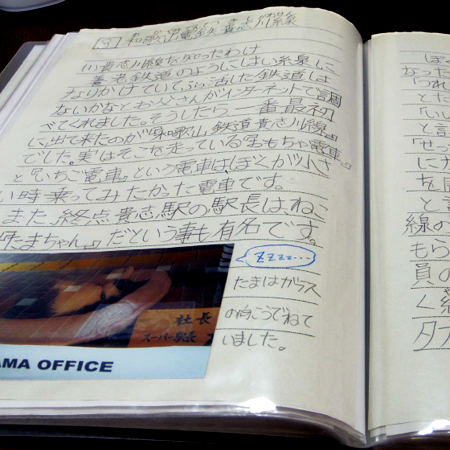 [3] 和歌山電鉄 貴志川線
(1)貴志川線を知ったわけ
養老鉄道のようにはい糸泉に
なりかけていてふっ活した鉄道は
ないかなとお父さんがインターネットで調
べてくれました。そうしたら一番最初
に出て来たのが「和歌山鉄道貴志川線」
でした。実はそこを走っている「おもちゃ電車」
と「いちご電車」という電車はぼくが小さ
い時乗ってみたかった電車です。
また、終点貴志駅の駅長は、ねこ
の「たまちゃん」だという事も有名です。
zzzz…
たまはガラス
の向こうでねて
いました。
社長
スーパー駅長
AMA OFFICE
ぼ
なった
つれ
とた
「いい
と言
「せっ
にカ
を
と言
線の
もら
員の
く
タ